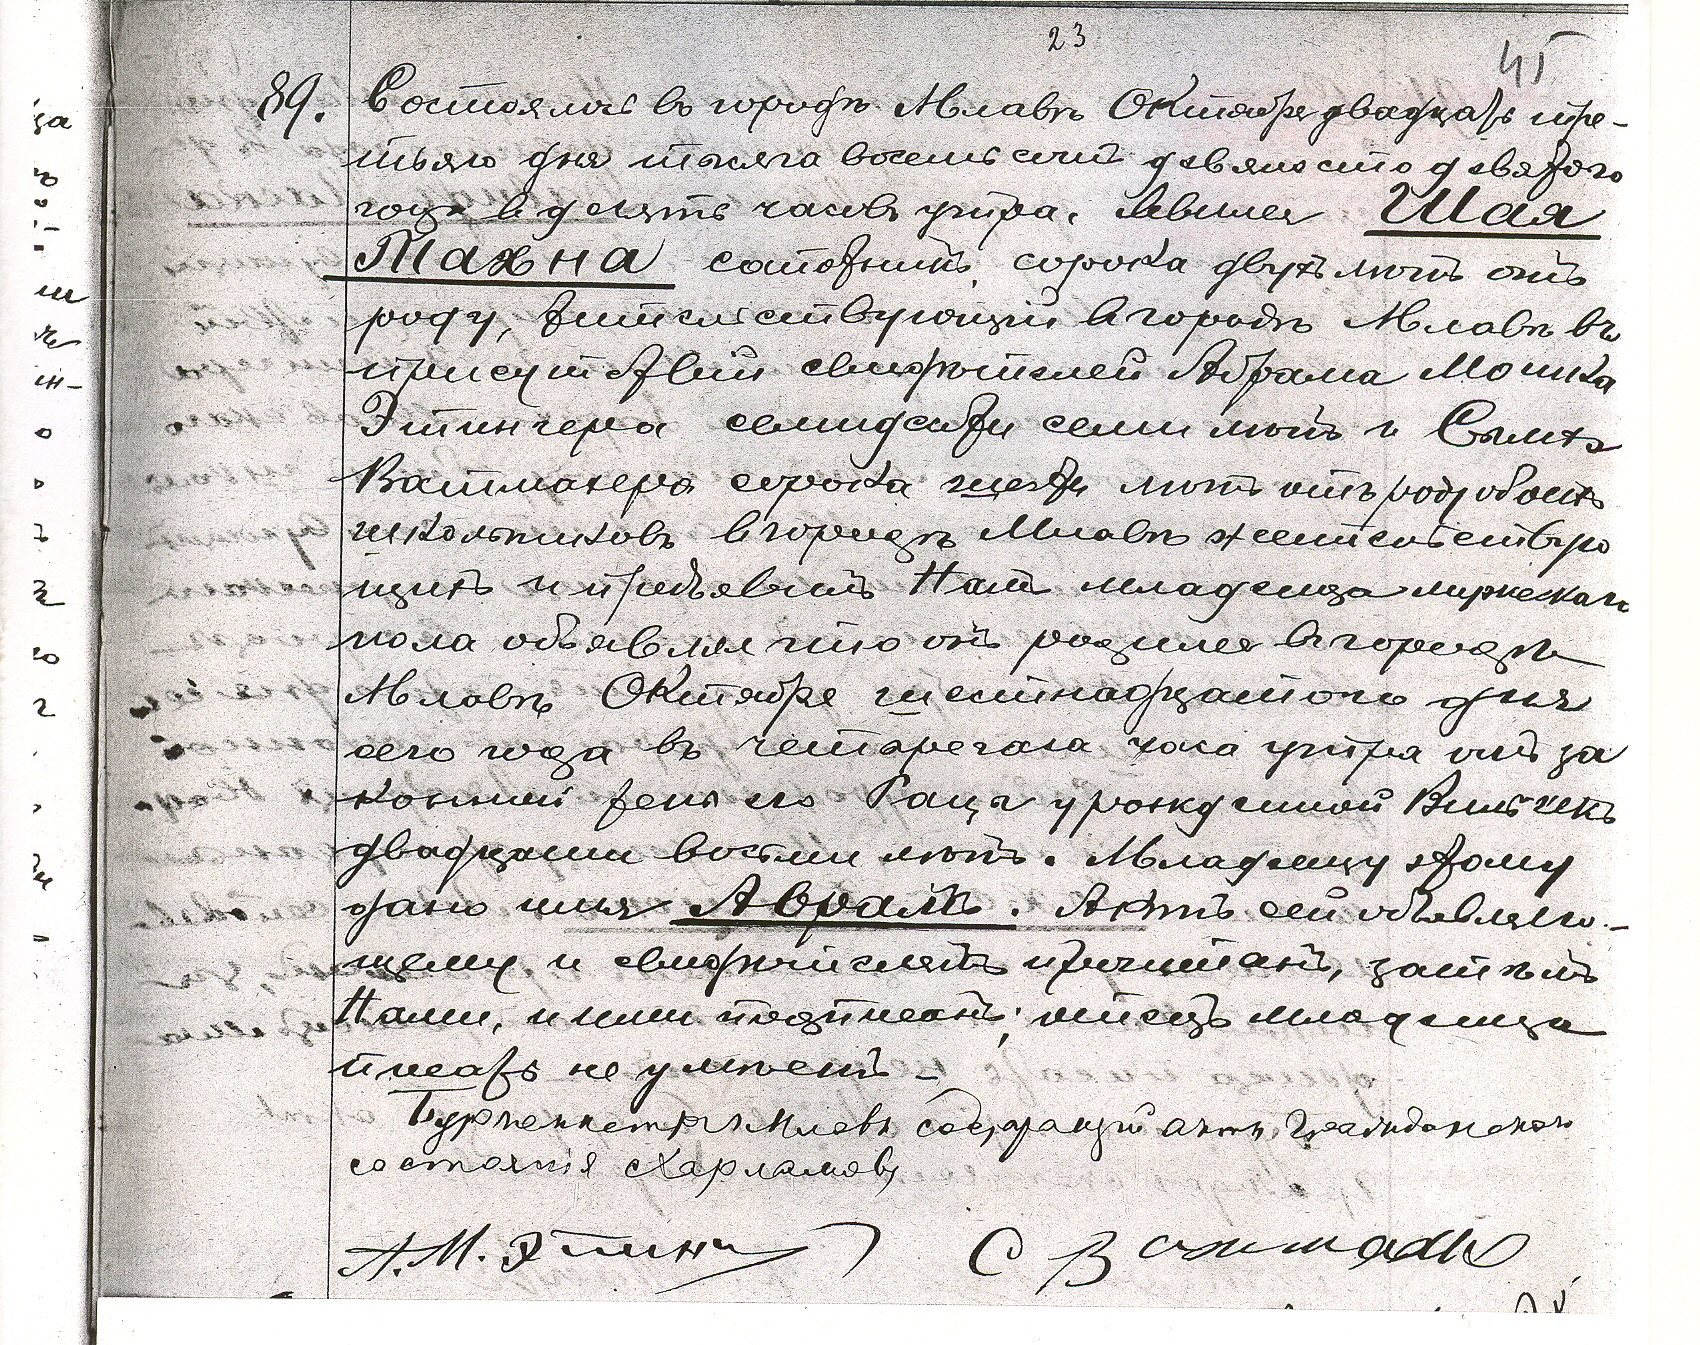 23
45
89. Состоялось въ городѣ Млавѣ Октября двадцать тре-
тьяго дня тысяча восемь сотъ девяносто девятого
года в десять часовъ утра. Явился Шая
Тахна сапожникъ, сорока двухъ лѣтъ отъ
роду, жительствующiй в городѣ Млавѣ въ
присутствiи свидѣтелей Абрама Мошка
Этингера семидсяти семи лѣтъ и
сорока шести лѣтъ отъ роду обоихъ
школьниковъ в городѣ Млавѣ жительствую
щихъ и предъявилъ Намъ младенца мужескаго
пола объявляя что онъ родился в городѣ
Млавѣ Октября шестнадцатого дня
сего года въ четыре часа утра отъ за
конной жены его урожденной
двадцати восьми лѣтъ. Младенцу этому
дано имя Абрамъ. Актъ сей объявляю-
щему и свидѣтелямъ прочитанъ, затѣмъ
Нами, и ими подписанъ; отецъ младенца
писать не умѣетъ -
Бургомистръ г. Млавы Содержащiй акты Гражданскаго
состоянiя Харламовъ
А. М. Этинг
С